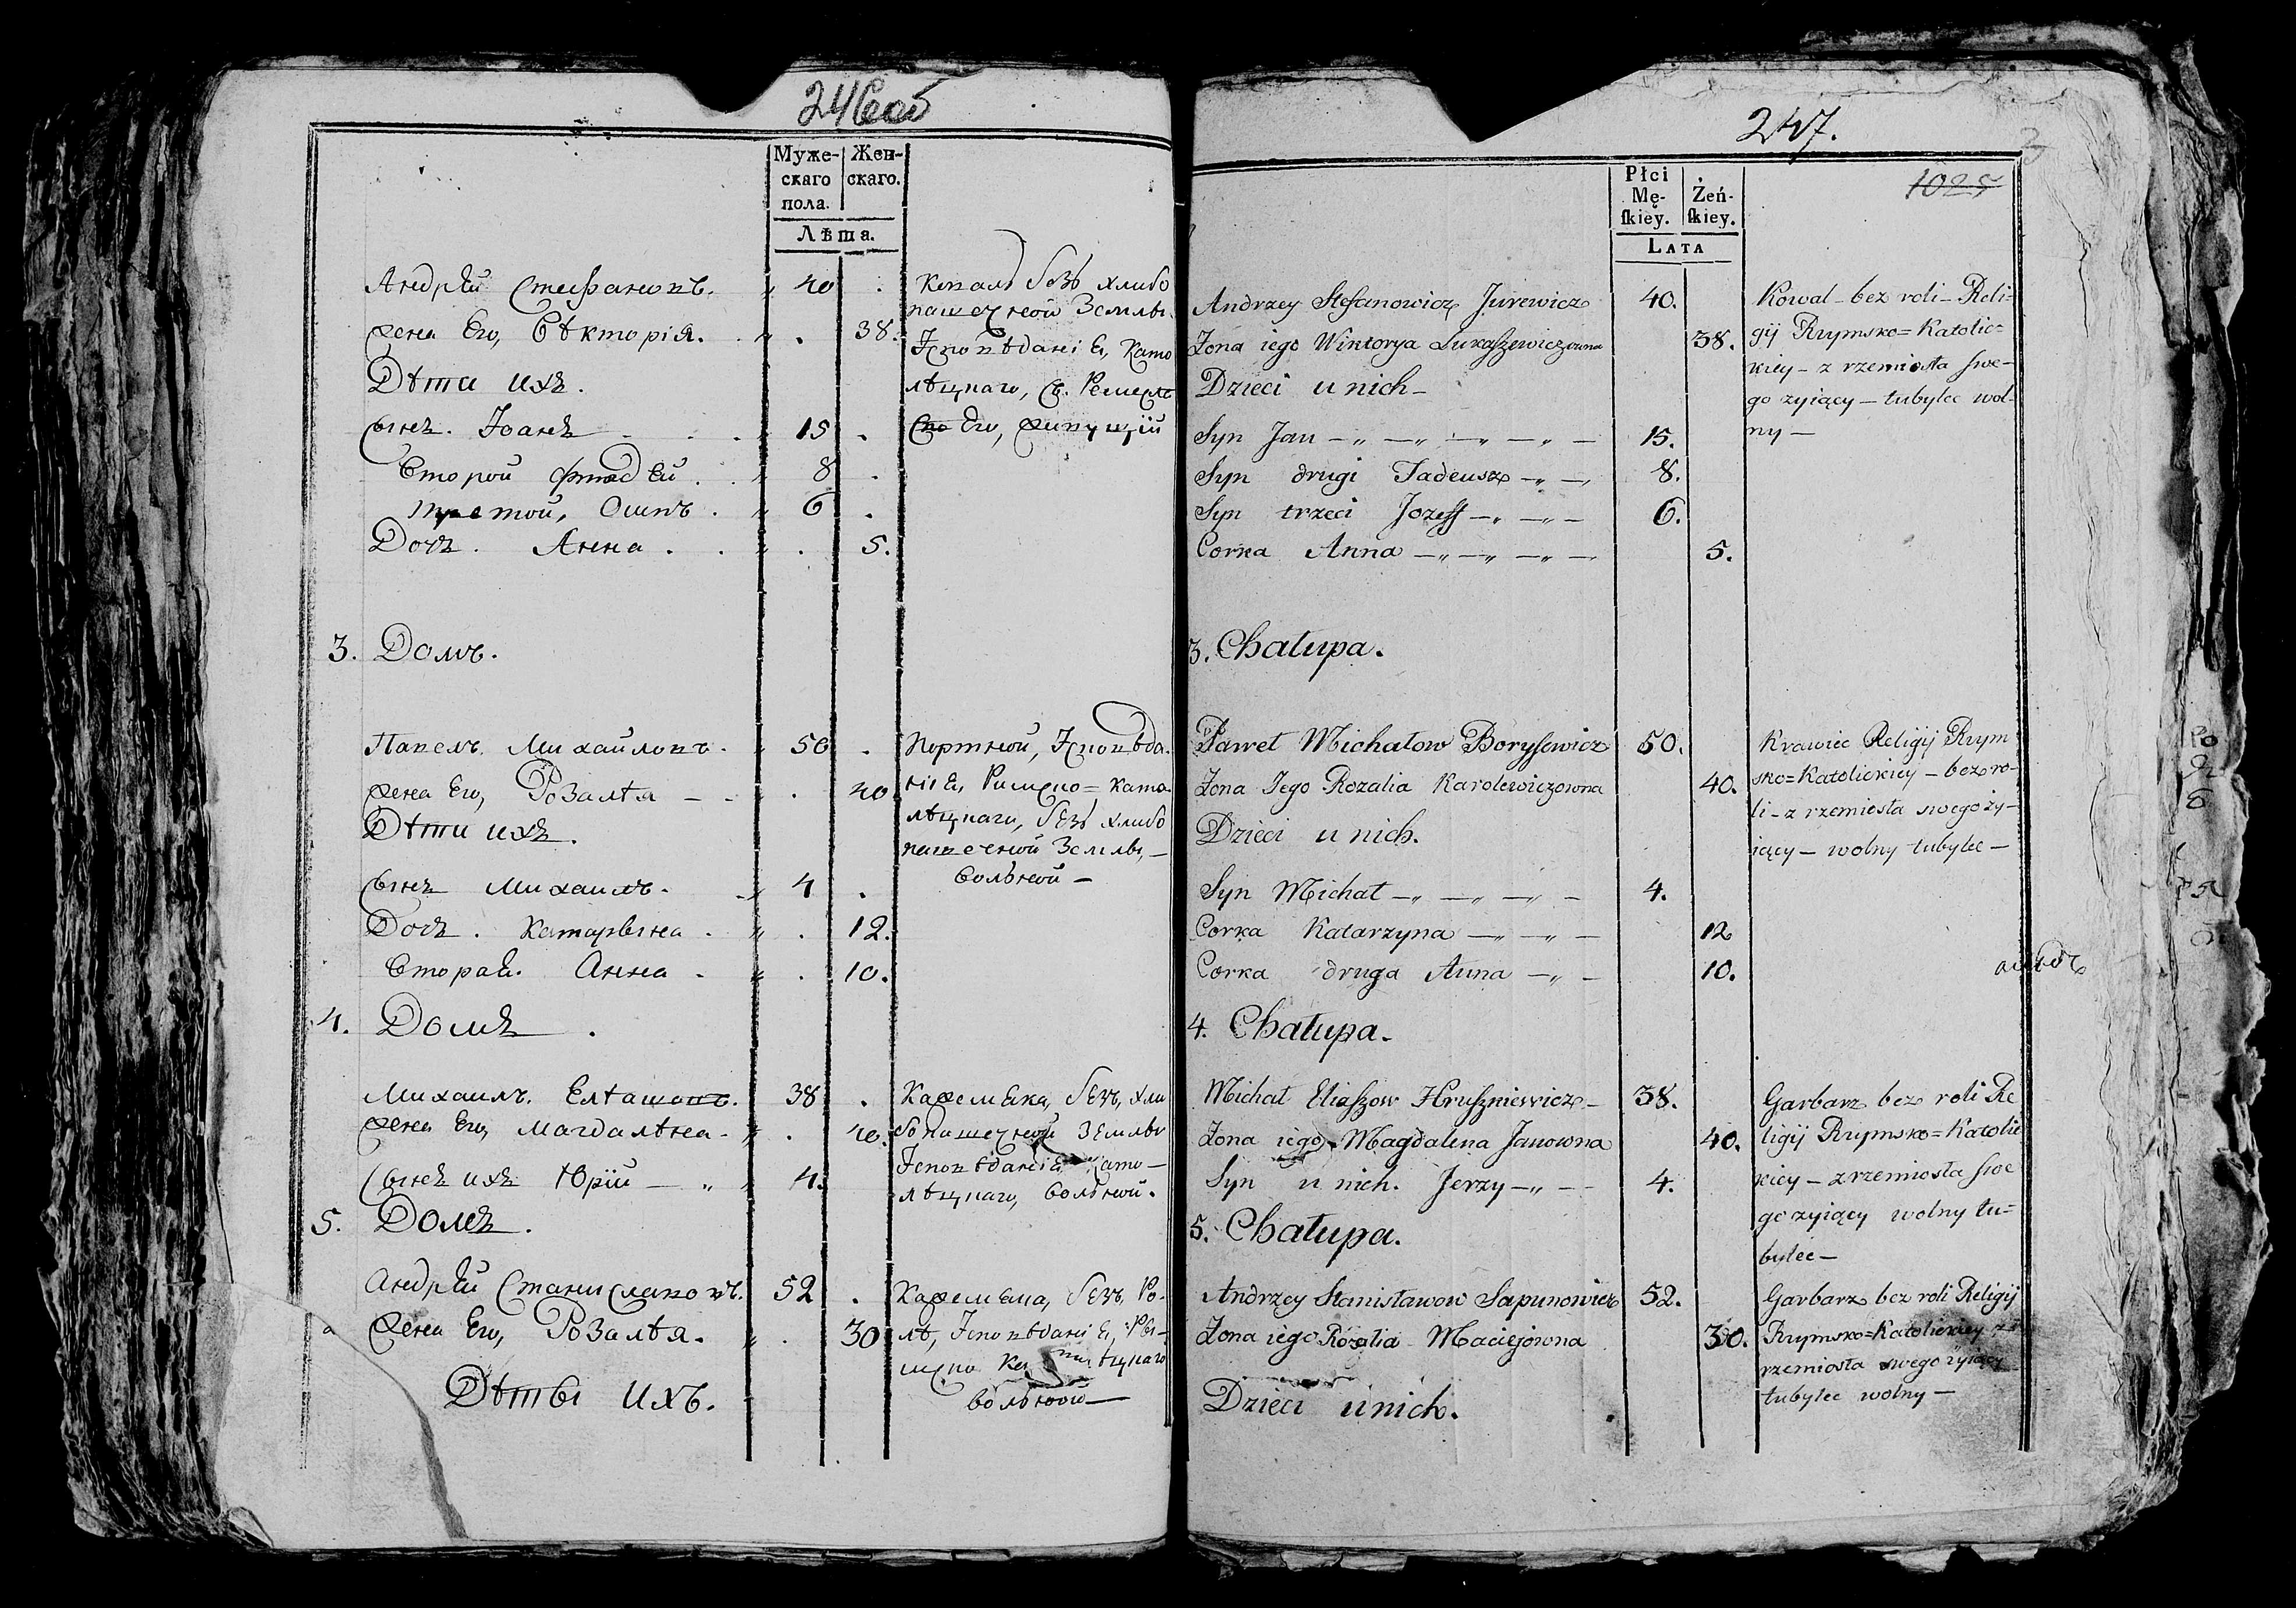 246об
Муже-
скаго
пола.
Жен-
скаго.
Лѣта.
Андрѣй Стефановъ. 40
Жена Его, Вѣкторія. 38.
Дѣти ихъ.
Сынъ. Іоанъ 15
Второй Фтадѣй. 8
Третой, Осипъ. 6
Дочь. Анна. 5.
Коваль безъ хлибо
пашечной Земль.
Јсповѣданіе, Като
лѣцкаго, съ. Ремесль
Его, живущій
3. Домъ.
Павелъ. Михайловъ. 50
Жена Его, Розалѣя 40
Дѣти ихъ.
Сынъ Михаилъ. 4
Дочь. Катарына. 12.
Вторая. Анна. 10.
Портной, Јсповѣда-
ніе, Римско=Като-
лѣцкаго, безъ хлибо
пашечной Земль,
вольной
4. Домъ.
Михаилъ. Елѣашовъ. 38
Жена Его, Магдалѣна. 40.
Сынъ ихъ Юрій 4.
Кажемѣка, безъ, хли
бопашечной Земль
Јсповѣданіе Като
лѣцкаго, вольной.
5. Домъ.
Андрѣй Станиславовъ. 52
Жена Его, Розалѣя. 30
Дѣты ихъ.
Кажемѣка, безъ, Ро-
лѣ, Јсповѣданіе, Ры-
мско
вольной
247.
1025
Płci
Mę-
ſkiey.
Żeń-
ſkiey.
Lata
Andrzey Stefanowicz Jurewicz 40.
Żona iego Wiktorya Łukaſzewiczowna 38.
Dzieci u nich
Syn Jan 15.
Syn drugi Tadeusz 8.
Syn trzeci Jozeff 6.
Corka Anna 5.
Kowal bez roli Reli=
gij Rzymsko=Katolic=
kiey z rzemiosła ſwe-
go zyiący tubylec wol-
ny
3. Chałupa.
Paweł Michałow Boryſewicz 50.
Żona Jego Rozalia Karolewiczowna 40.
Dzieci u nich.
Syn Michał 4.
Corka Katarzyna 12
Corka druga Anna 10.
Krawiec Religij Rzym
sko=Katolickiey bez ro-
li z rzemiosła swego ży-
iący wolny tubylec
4. Chałupa.
Michał Eliaſzow Hruſzniewicz 38.
Żona iego Magdalena Janowna 40.
Syn u nich. Jerzy 4.
Garbarz bez roli Re
ligij Rzymsko=Katolic
kiey z rzemiosła ſwe
go zyiący wolny tu=
bylec
5. Chałupa.
Andrzey Stanisławow Sapunowicz 52.
Żona iego Rozalia Maciejowna 30.
Dzieci u nich.
Garbarz bez roli Religij
Rzymsko=Katolickiey z
rzemiosła swego żyiący
tubylec wolny